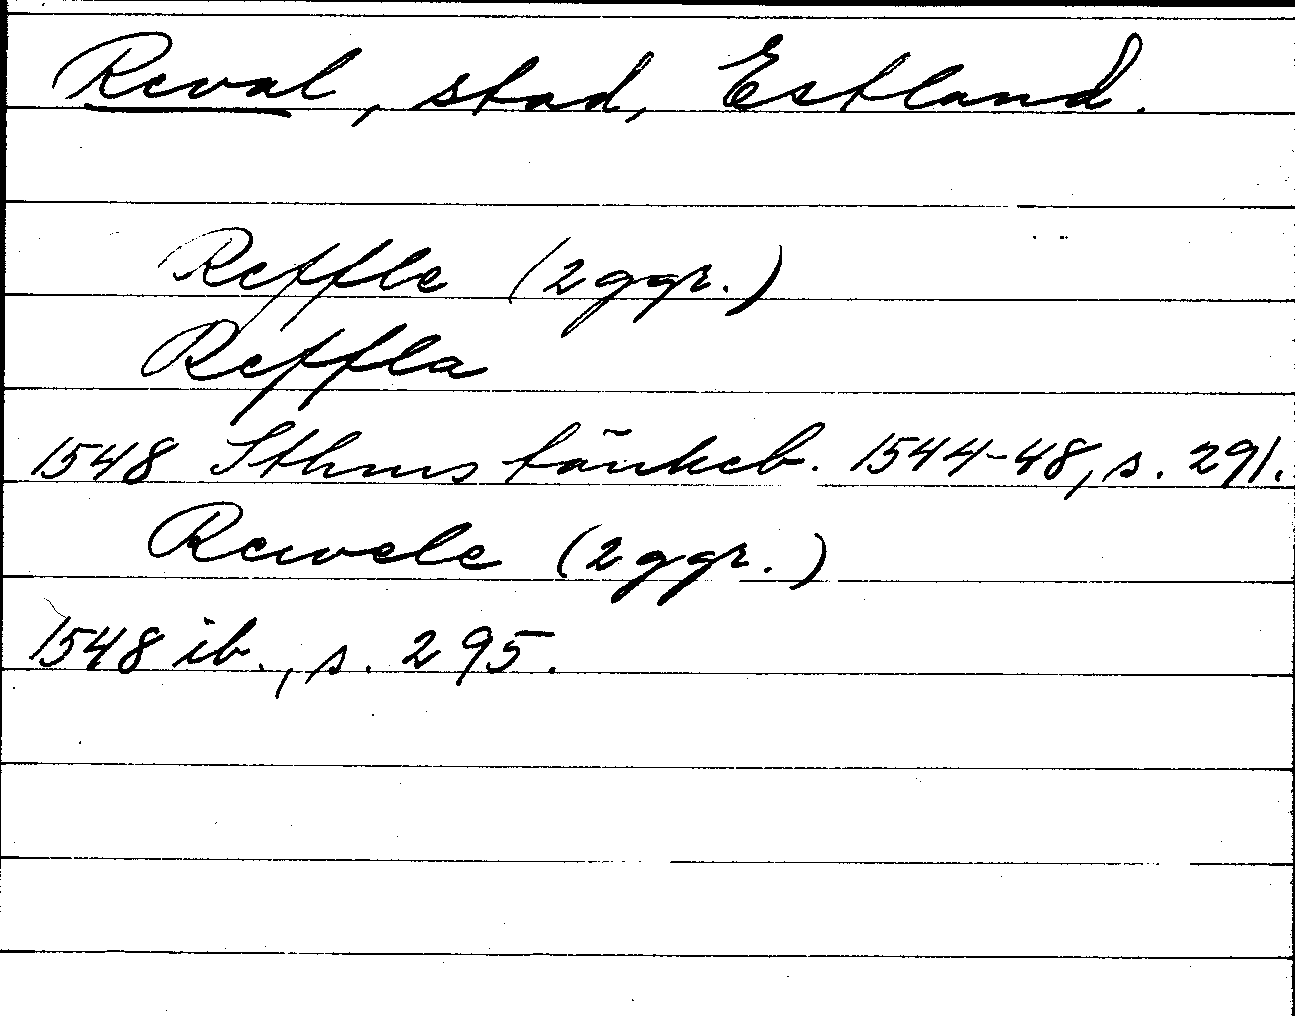 Reval, stad, Estland.
Reffle (2 ggr.)
Reffla
1548 Sthms tänkeb. 1544-48, s. 291.
Rewele (2 ggr.)
1548 ib., s. 295.